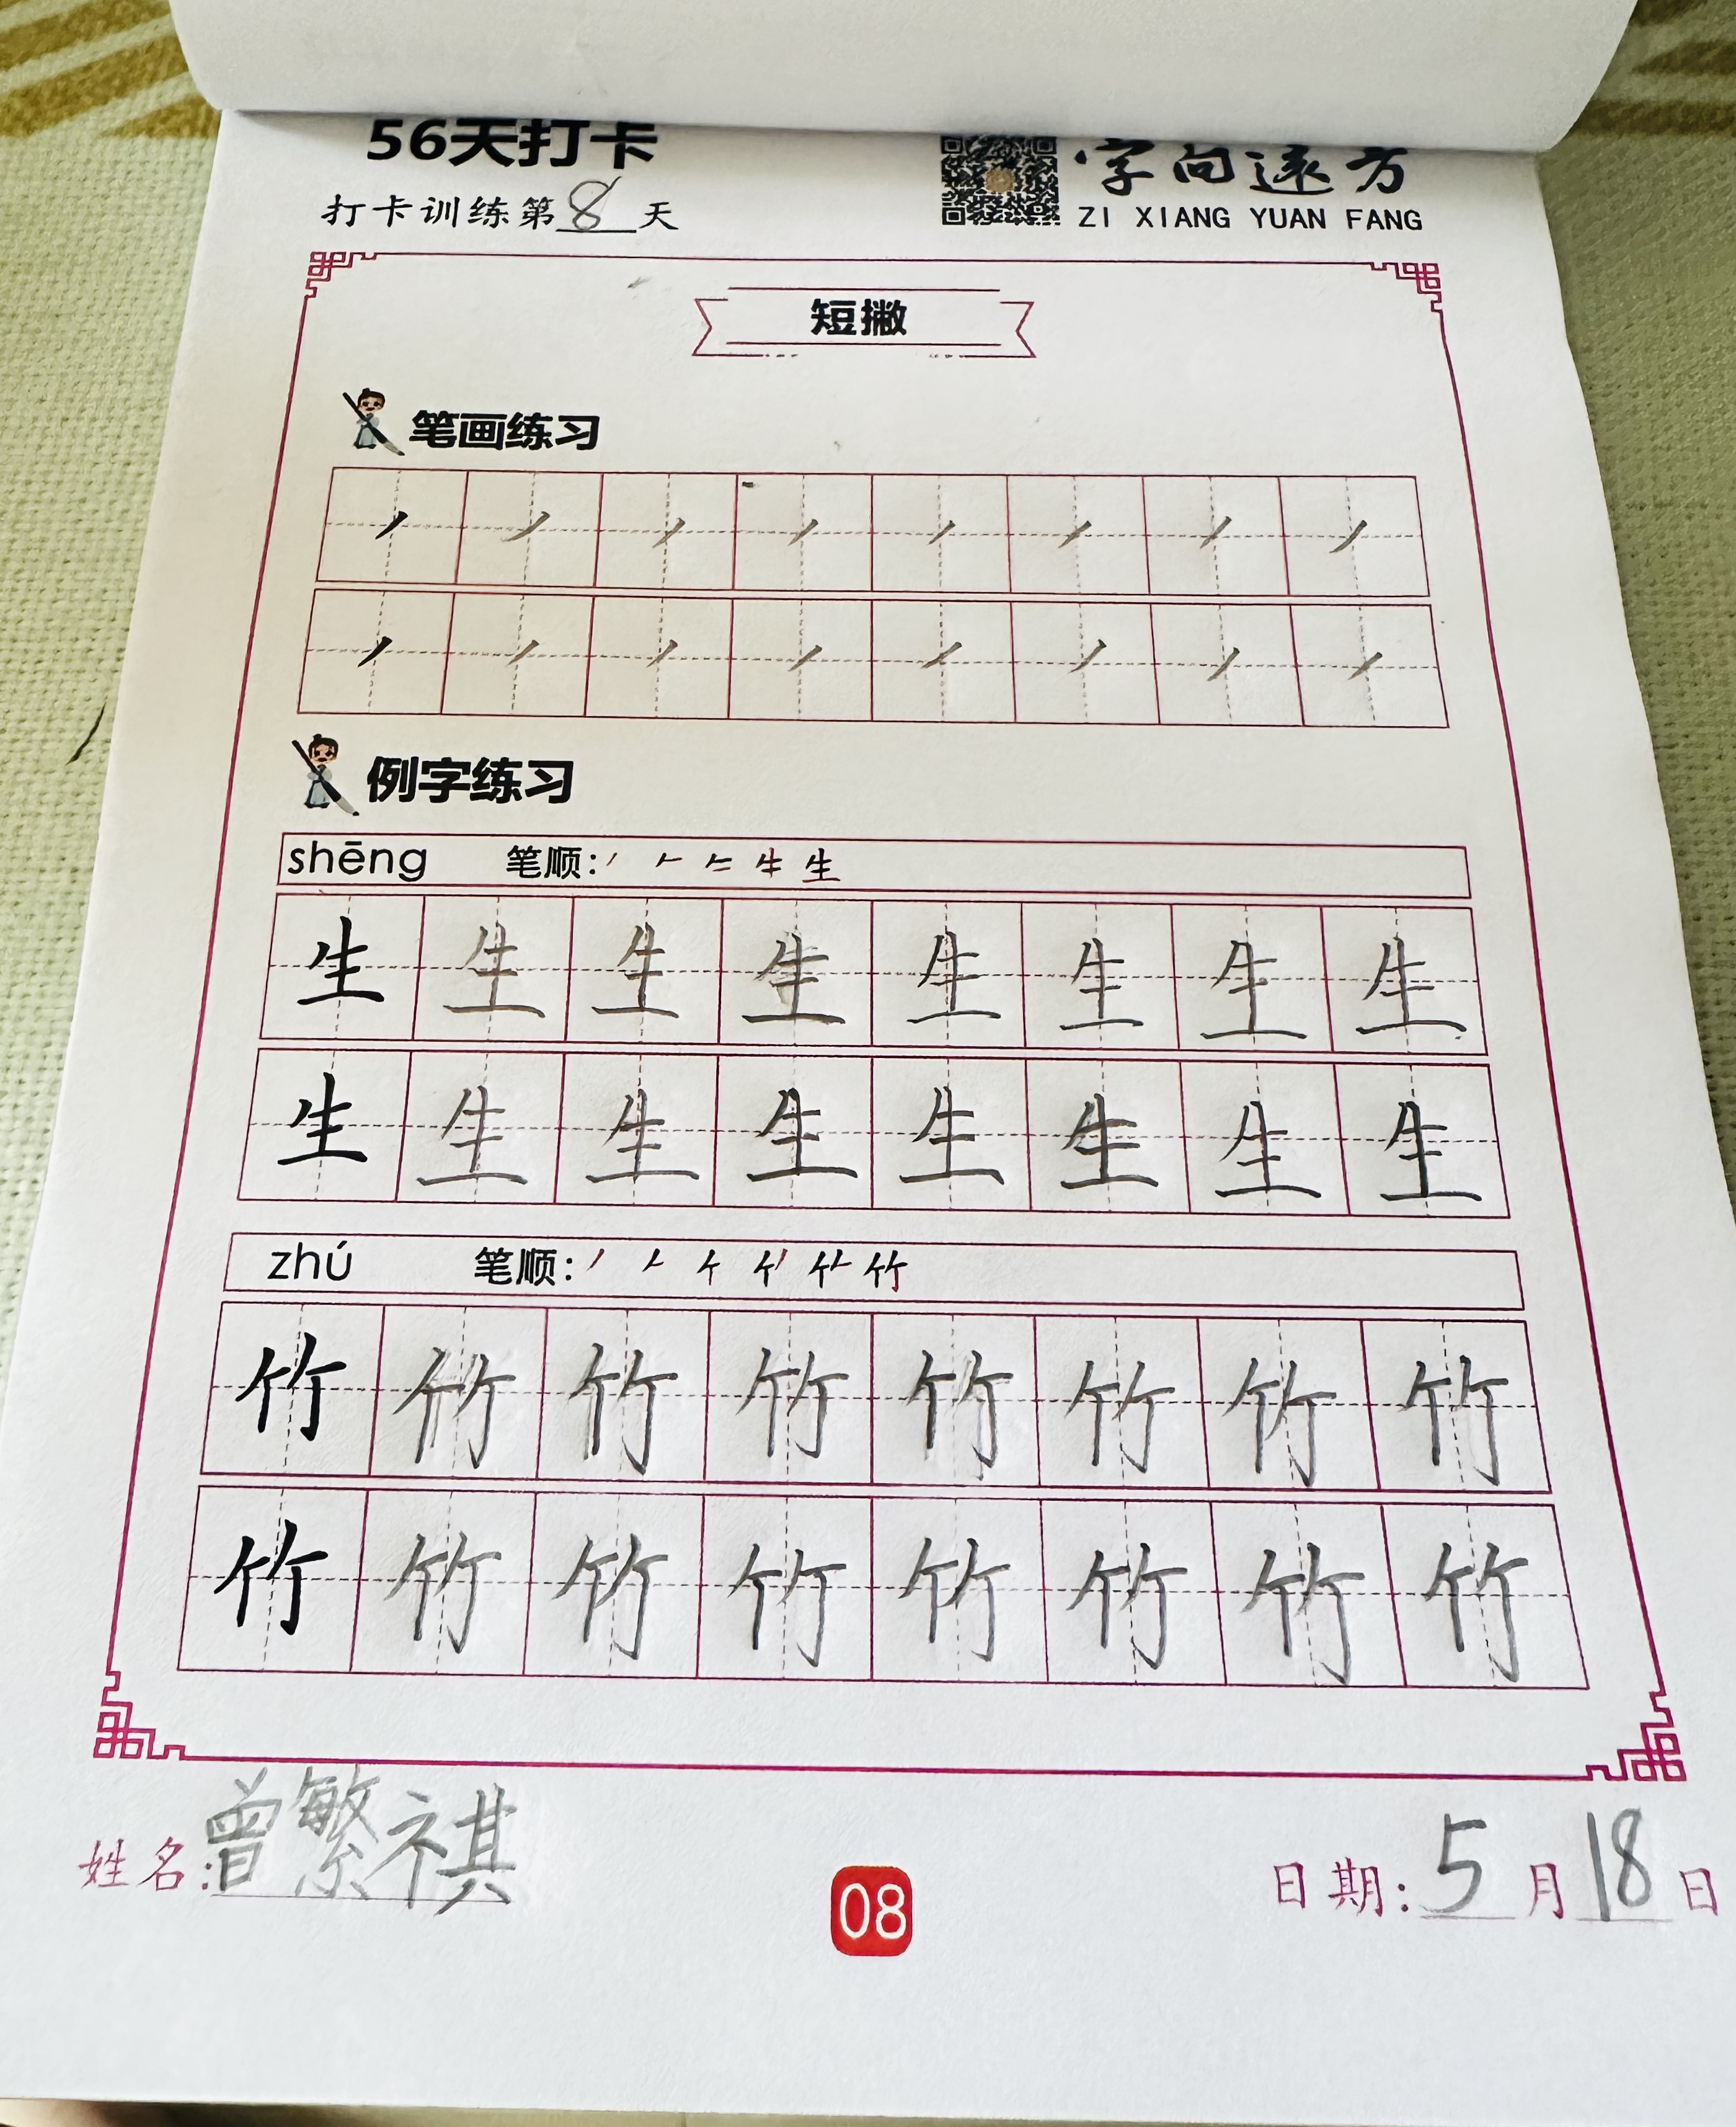 56天打卡
打卡训练第8天
字向远方
ZI XIANG YUAN FANG
短撇
笔画练习
㇒ ㇒ ㇒ ㇒ ㇒ ㇒ ㇒ ㇒
㇒ ㇒ ㇒ ㇒ ㇒ ㇒ ㇒ ㇒
例字练习
shēng 笔顺: 生
生 生 生 生 生 生 生 生
生 生 生 生 生 生 生 生
zhú 笔顺: 竹
竹 竹 竹 竹 竹 竹 竹 竹
竹 竹 竹 竹 竹 竹 竹 竹
姓名:曾繁祺
08
日期:5月18日